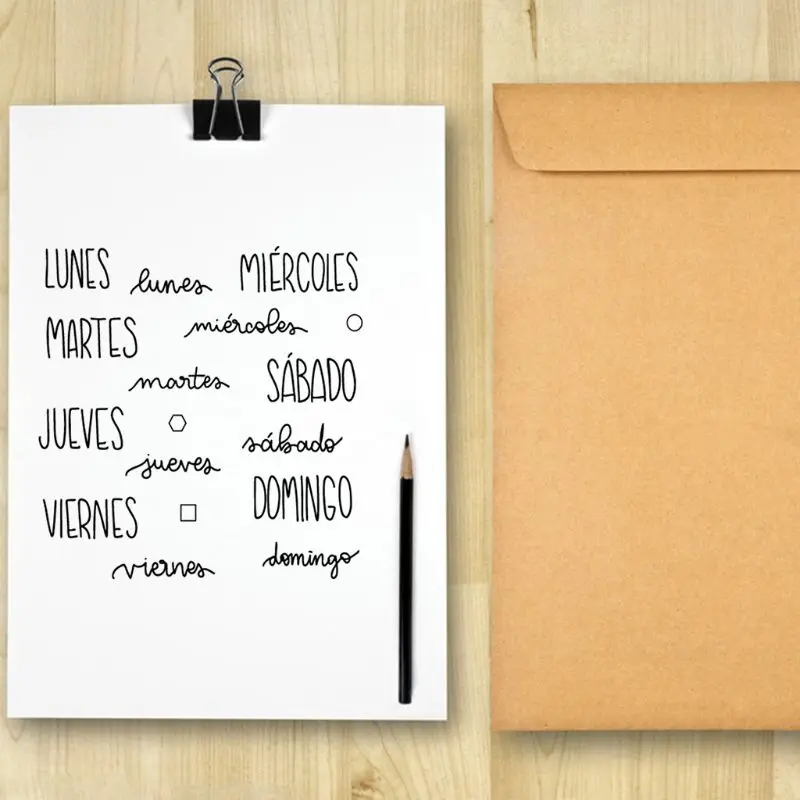 LUNES
lunes
MIÉRCOLES
miércoles
MARTES
martes
SÁBADO
sábado
JUEVES
jueves
DOMINGO
domingo
VIERNES
viernes